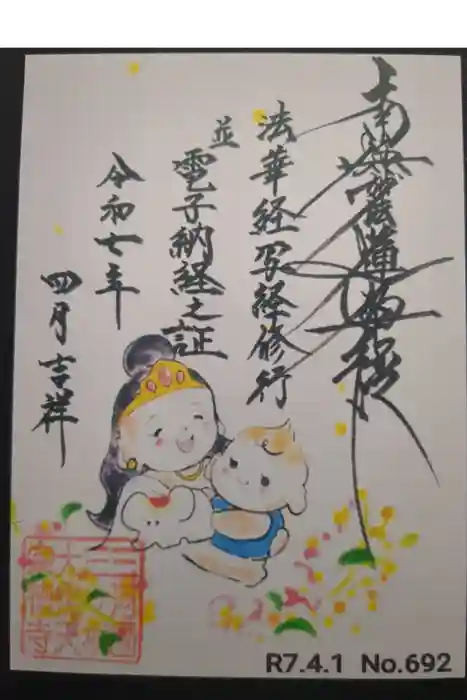 南無
法華経写経修行
並
電子納経之証
令和七年
四月吉祥
R7.4.1 No.692